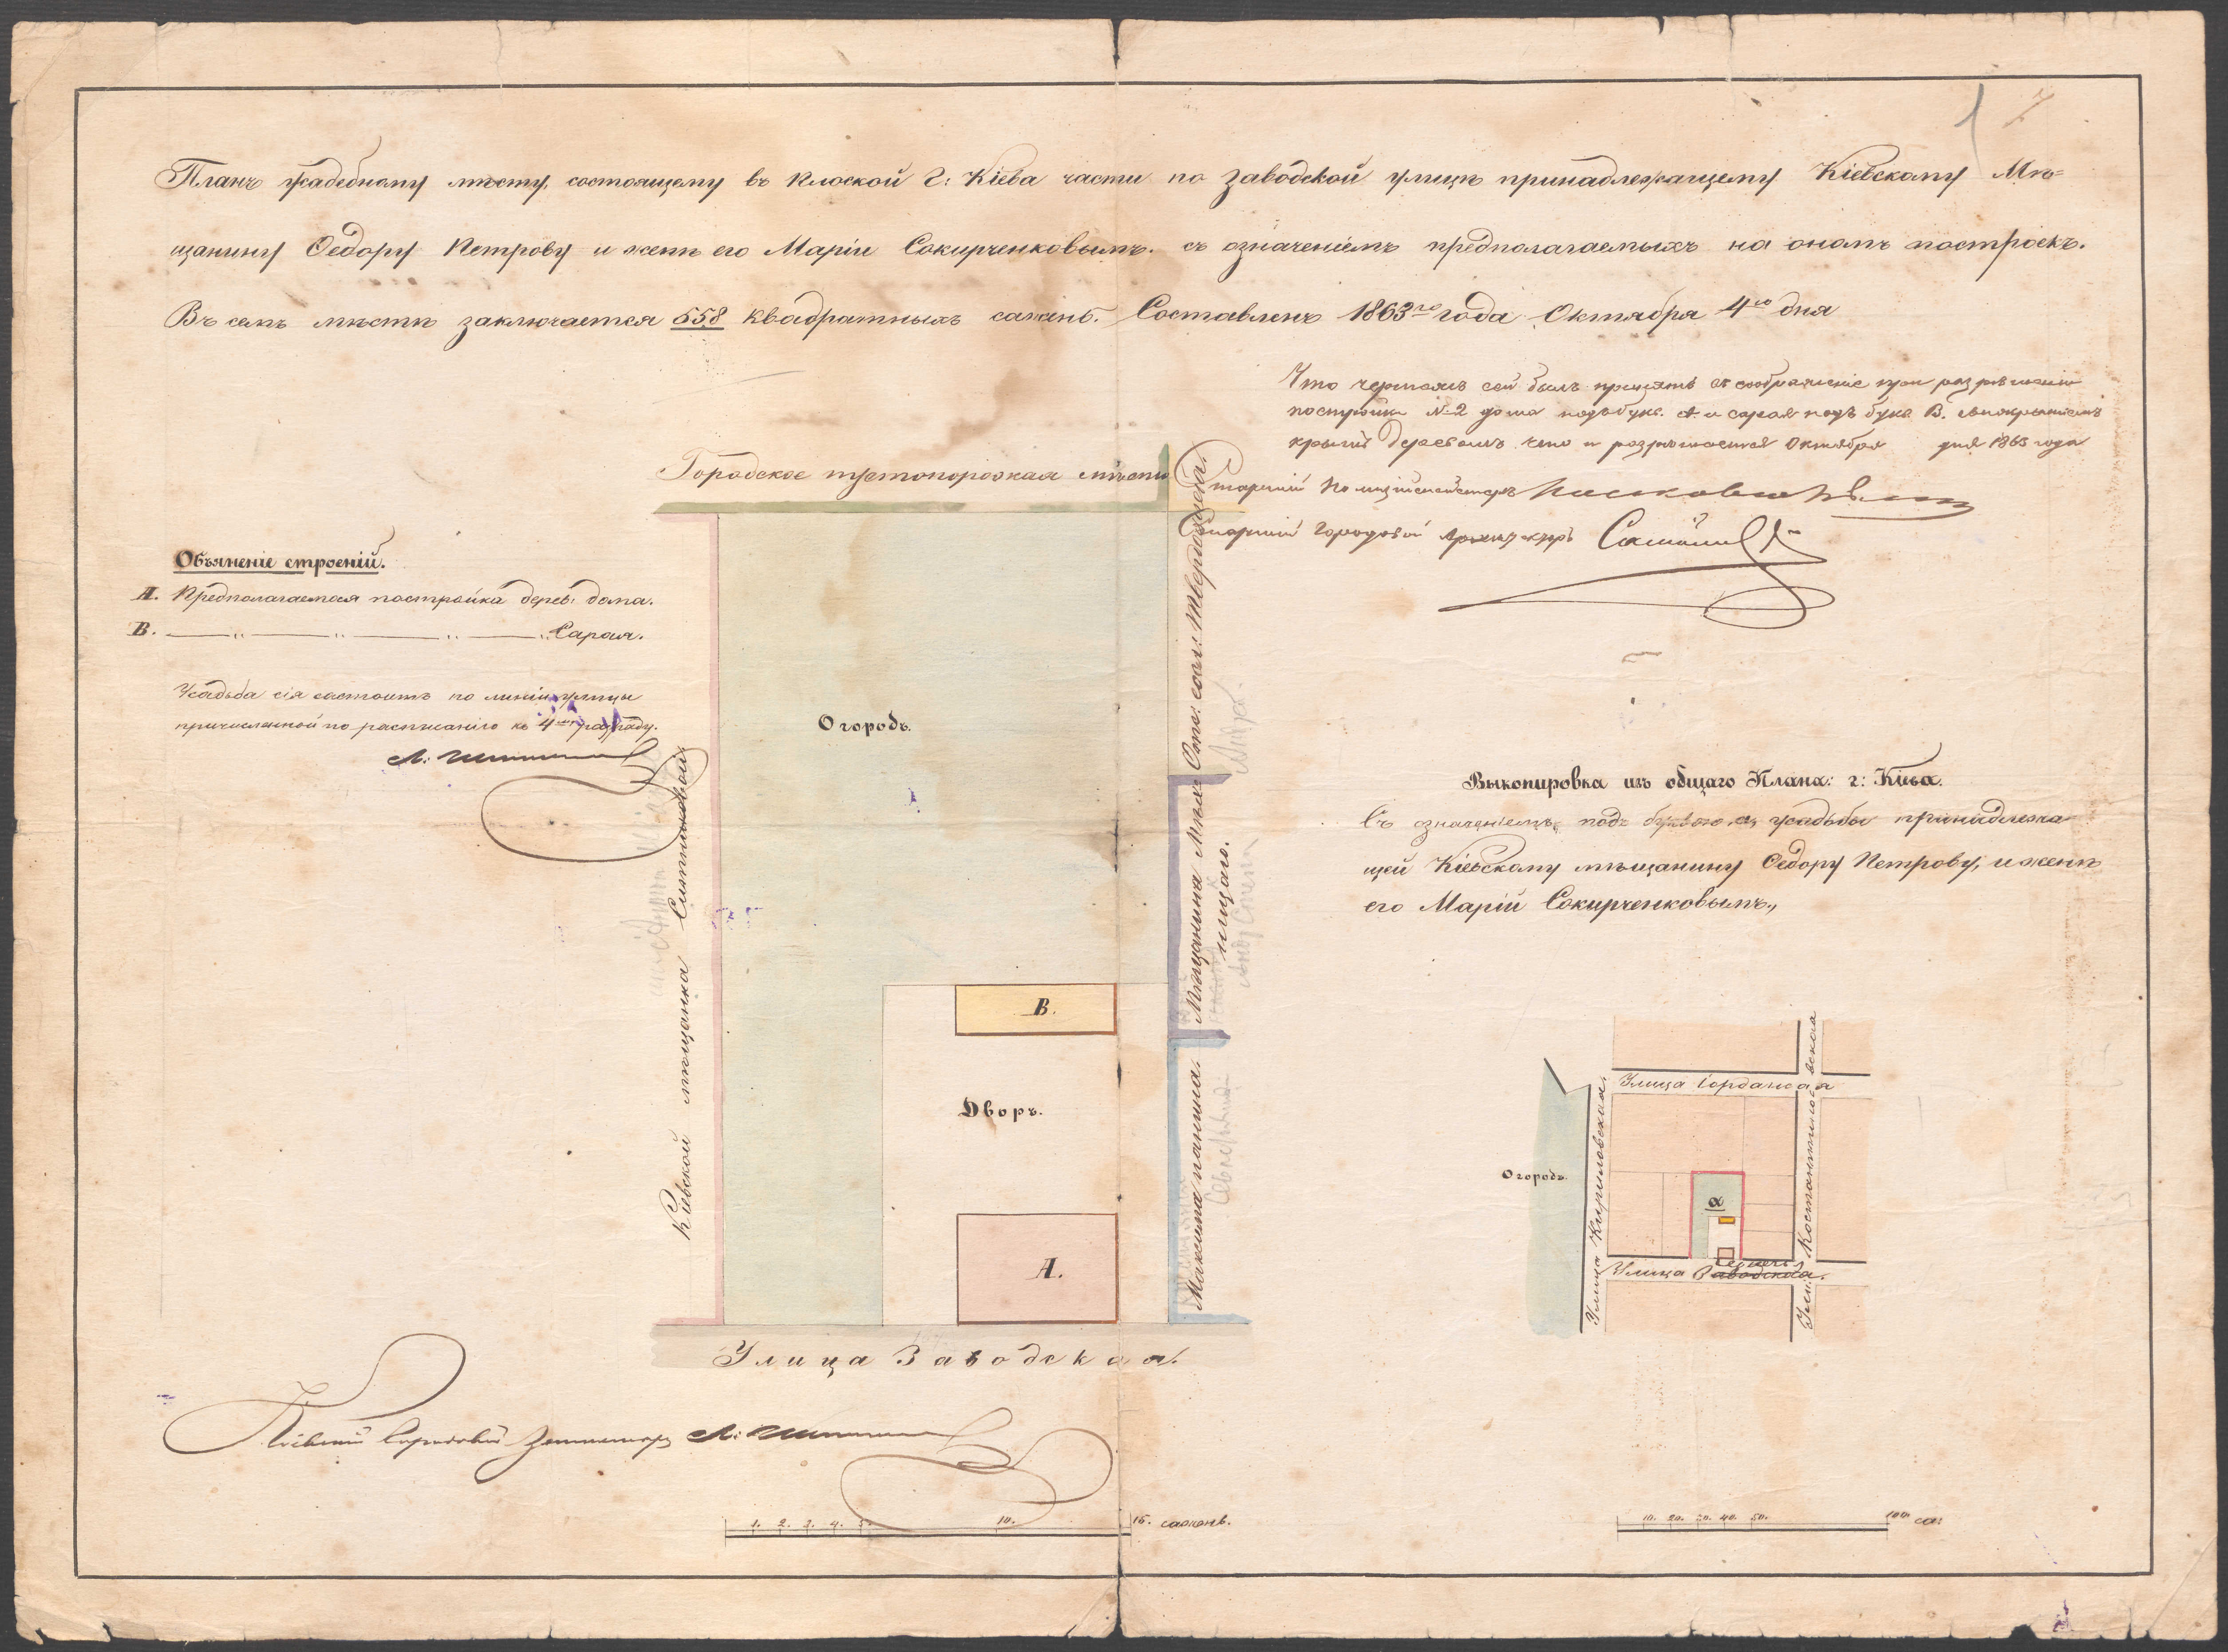 Планъ усадебному мѣсту, состоящему въ Плоской г: Кіева части по заводской улицѣ принадлежащему Кіевскому Мѣ=
щанину Ѳедору Петрову и женѣ его Маріи Сокирченковымъ. съ означеніемъ предполагаемыхъ на ономъ построекъ.
Въ семъ мѣстѣ заключается 558 квадратныхъ сажень. Составленъ 1863го года Октября 4го дня
Что чертежъ сей былъ принятъ въ соображеніе при разрѣшеніи
постройки № 2 дома подъ букв. А и сарая подъ букв В.
крытій деревомъ что и разрѣшается Октября дня 1863 года
Старшій Полиціймейстеръ
Старшій Городовой Архитекторъ
Городское пустопорожная мѣсто
Объяненіе строеній.
А. Предполагаемая постройка дерев: дома.
В. —„—„—„—„ Сарая.
Усадьба сія состоитъ по линіи улицы
причисленной по расписанію къ 4му разряду.
Кіевской мѣщанка Ситниковой
Огородъ.
В.
Дворъ.
А.
Отс: сол: Твердохлеба.
Мѣщанина Мель
ницкаго.
Максима панина.
Улица Заводская.
Кіевскій Городовой Землемеръ
1. 2. 3. 4. 5. 10. 15. сажень.
Выкопировка изъ общаго Плана: г: Кіева.
Съ означеніемъ, подъ буквою а, усадьбы принадлежа
щей Кіевскому мѣщанину Ѳедору Петрову, и женѣ
его Марій Сокирченковымъ.,
Улица Іорданская
Улица Кириловская.
Ули: Костантиновская
Огородъ.
а
Улица Заводская.
10. 20. 30. 40. 50. 100 са: